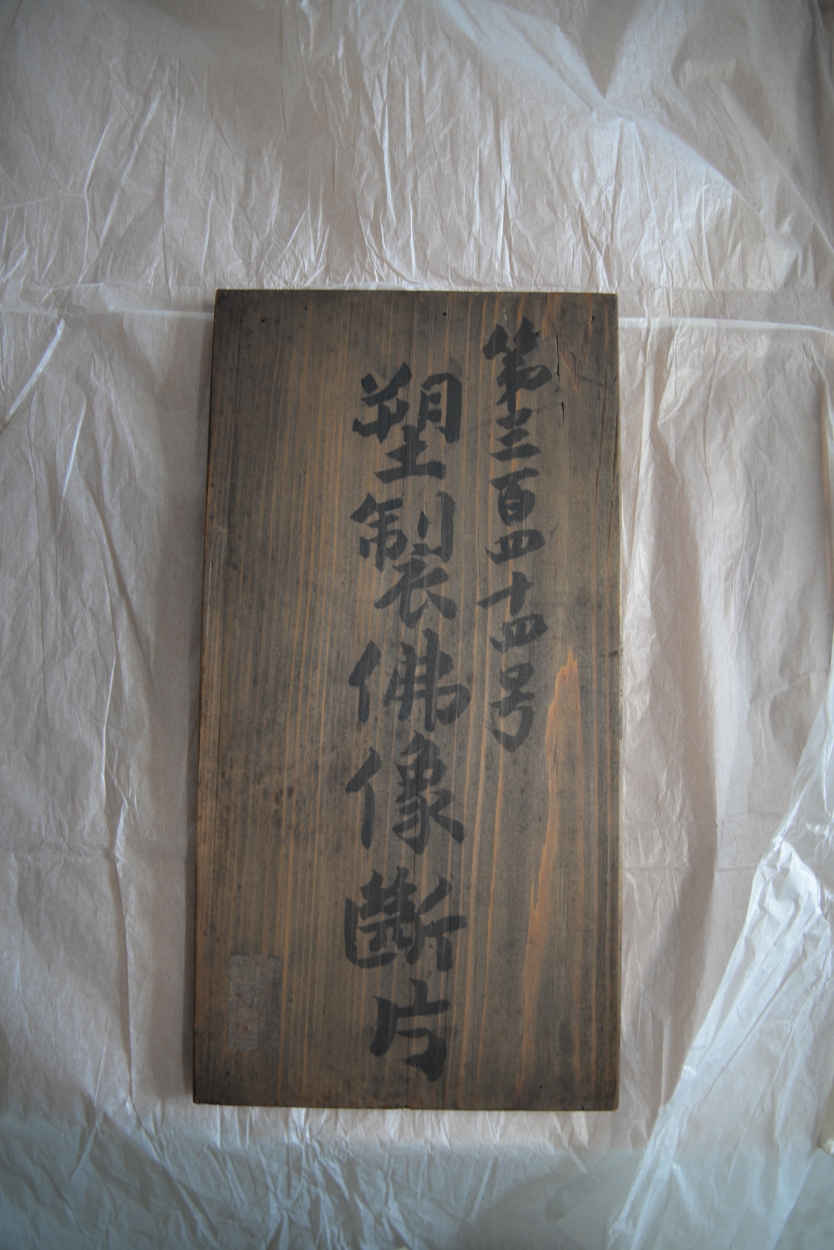 第三百四十四号
塑製佛像斷片